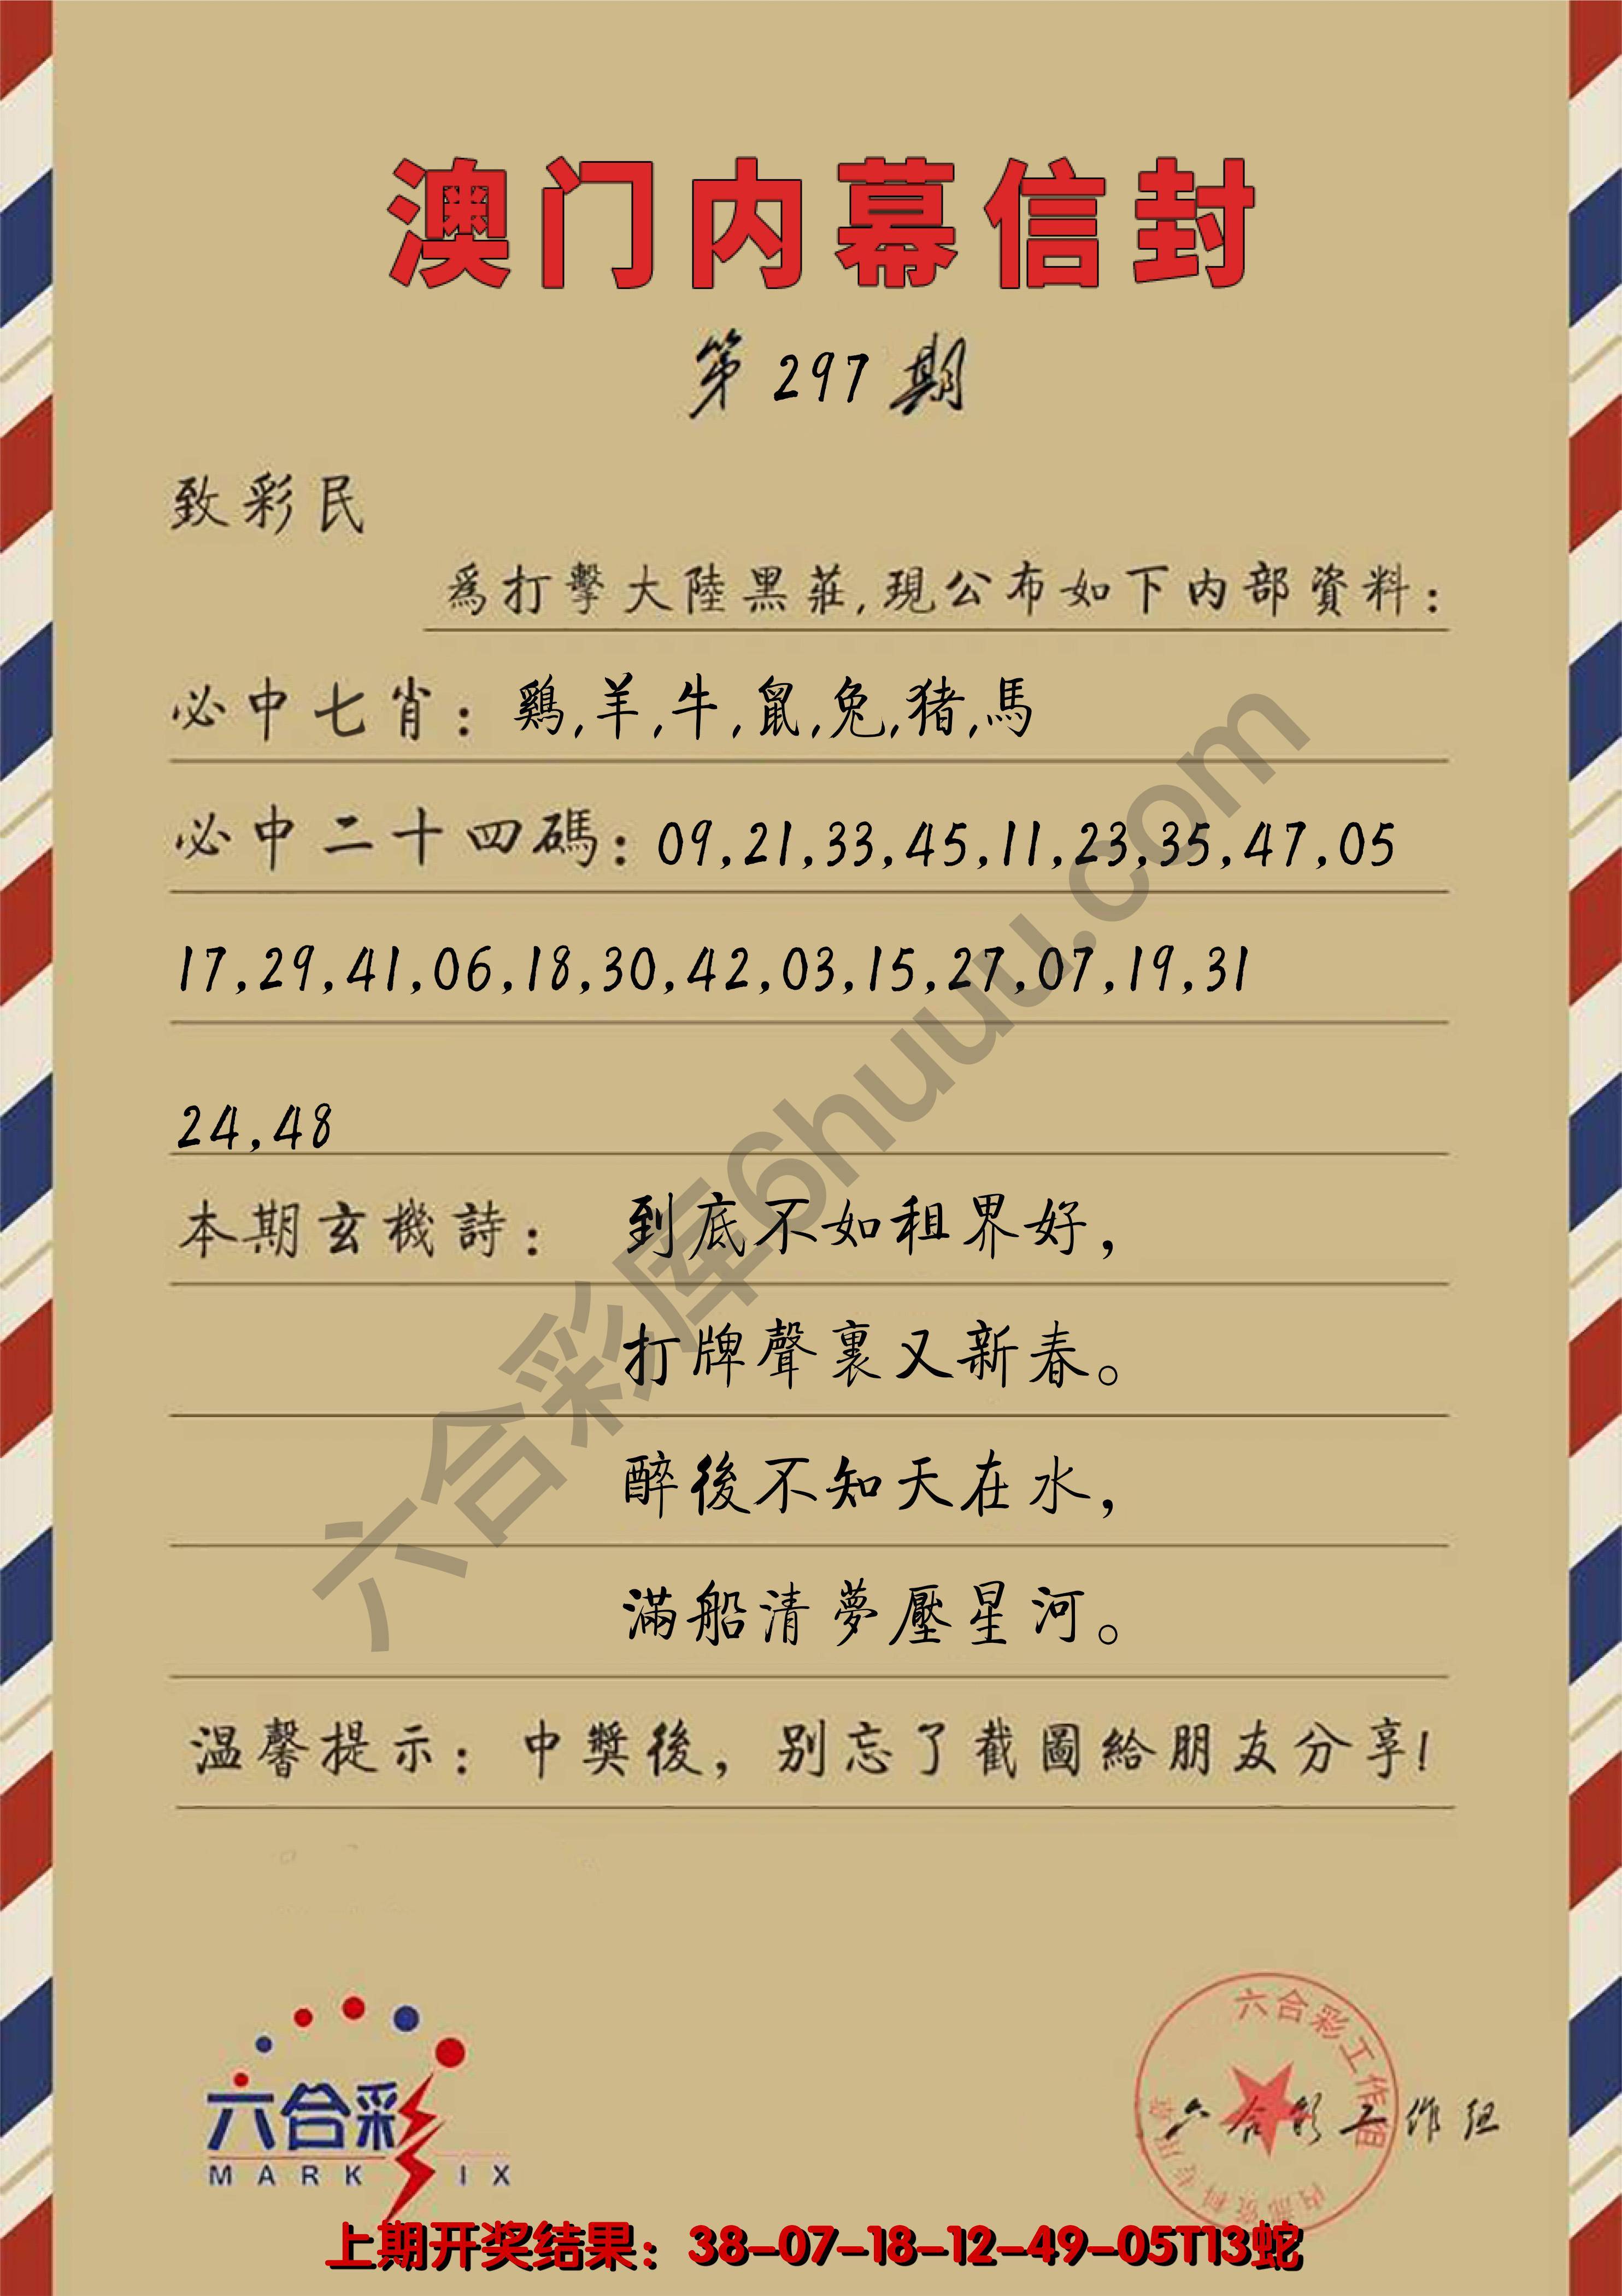 澳门内幕信封
第297期
致彩民
爲打擊大陸黑莊,現公布如下内部資料:
必中七肖: 鷄,羊,牛,鼠,兔,猪,馬
必中二十四碼: 09,21,33,45,11,23,35,47,05
17,29,41,06,18,30,42,03,15,27,07,19,31
24,48
本期玄機詩: 到底不如租界好，
打牌聲裏又新春。
醉後不知天在水，
滿船清夢壓星河。
温馨提示: 中獎後，别忘了截圖給朋友分享!
六合彩库6huuu.com
六合彩
MARK IX
六合彩工作组
内部资料专用章
六合彩工作组
上期开奖结果：38-07-18-12-49-05T13蛇